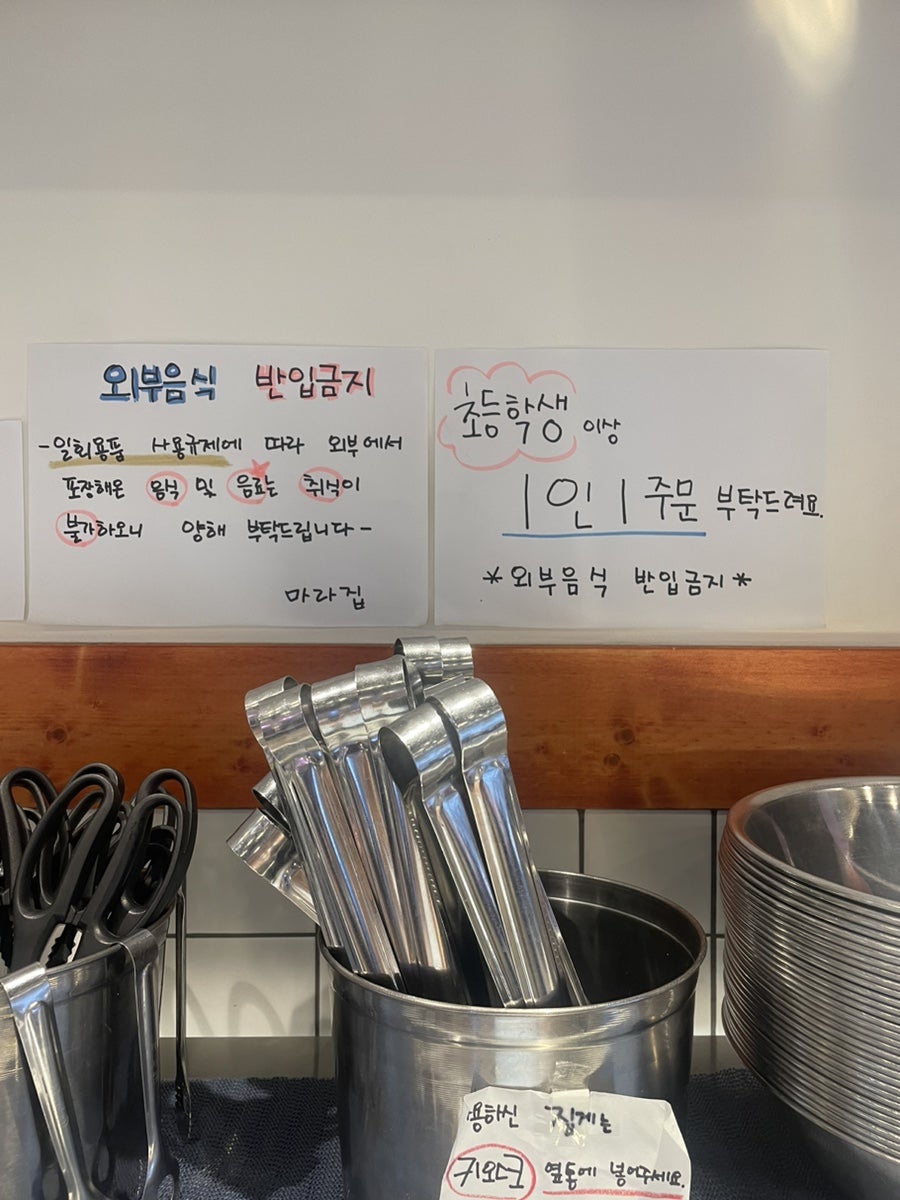 외부음식 반입금지
-일회용품 사용규제에 따라 외부에서
포장해온 음식 및 음료는 취식이
불가하오니 양해 부탁드립니다-
마라집
초등학생 이상
1인 1 주문 부탁드려요.
*외부음식 반입금지*
용하신 집게는
키오스크 옆통에 넣어주세요.